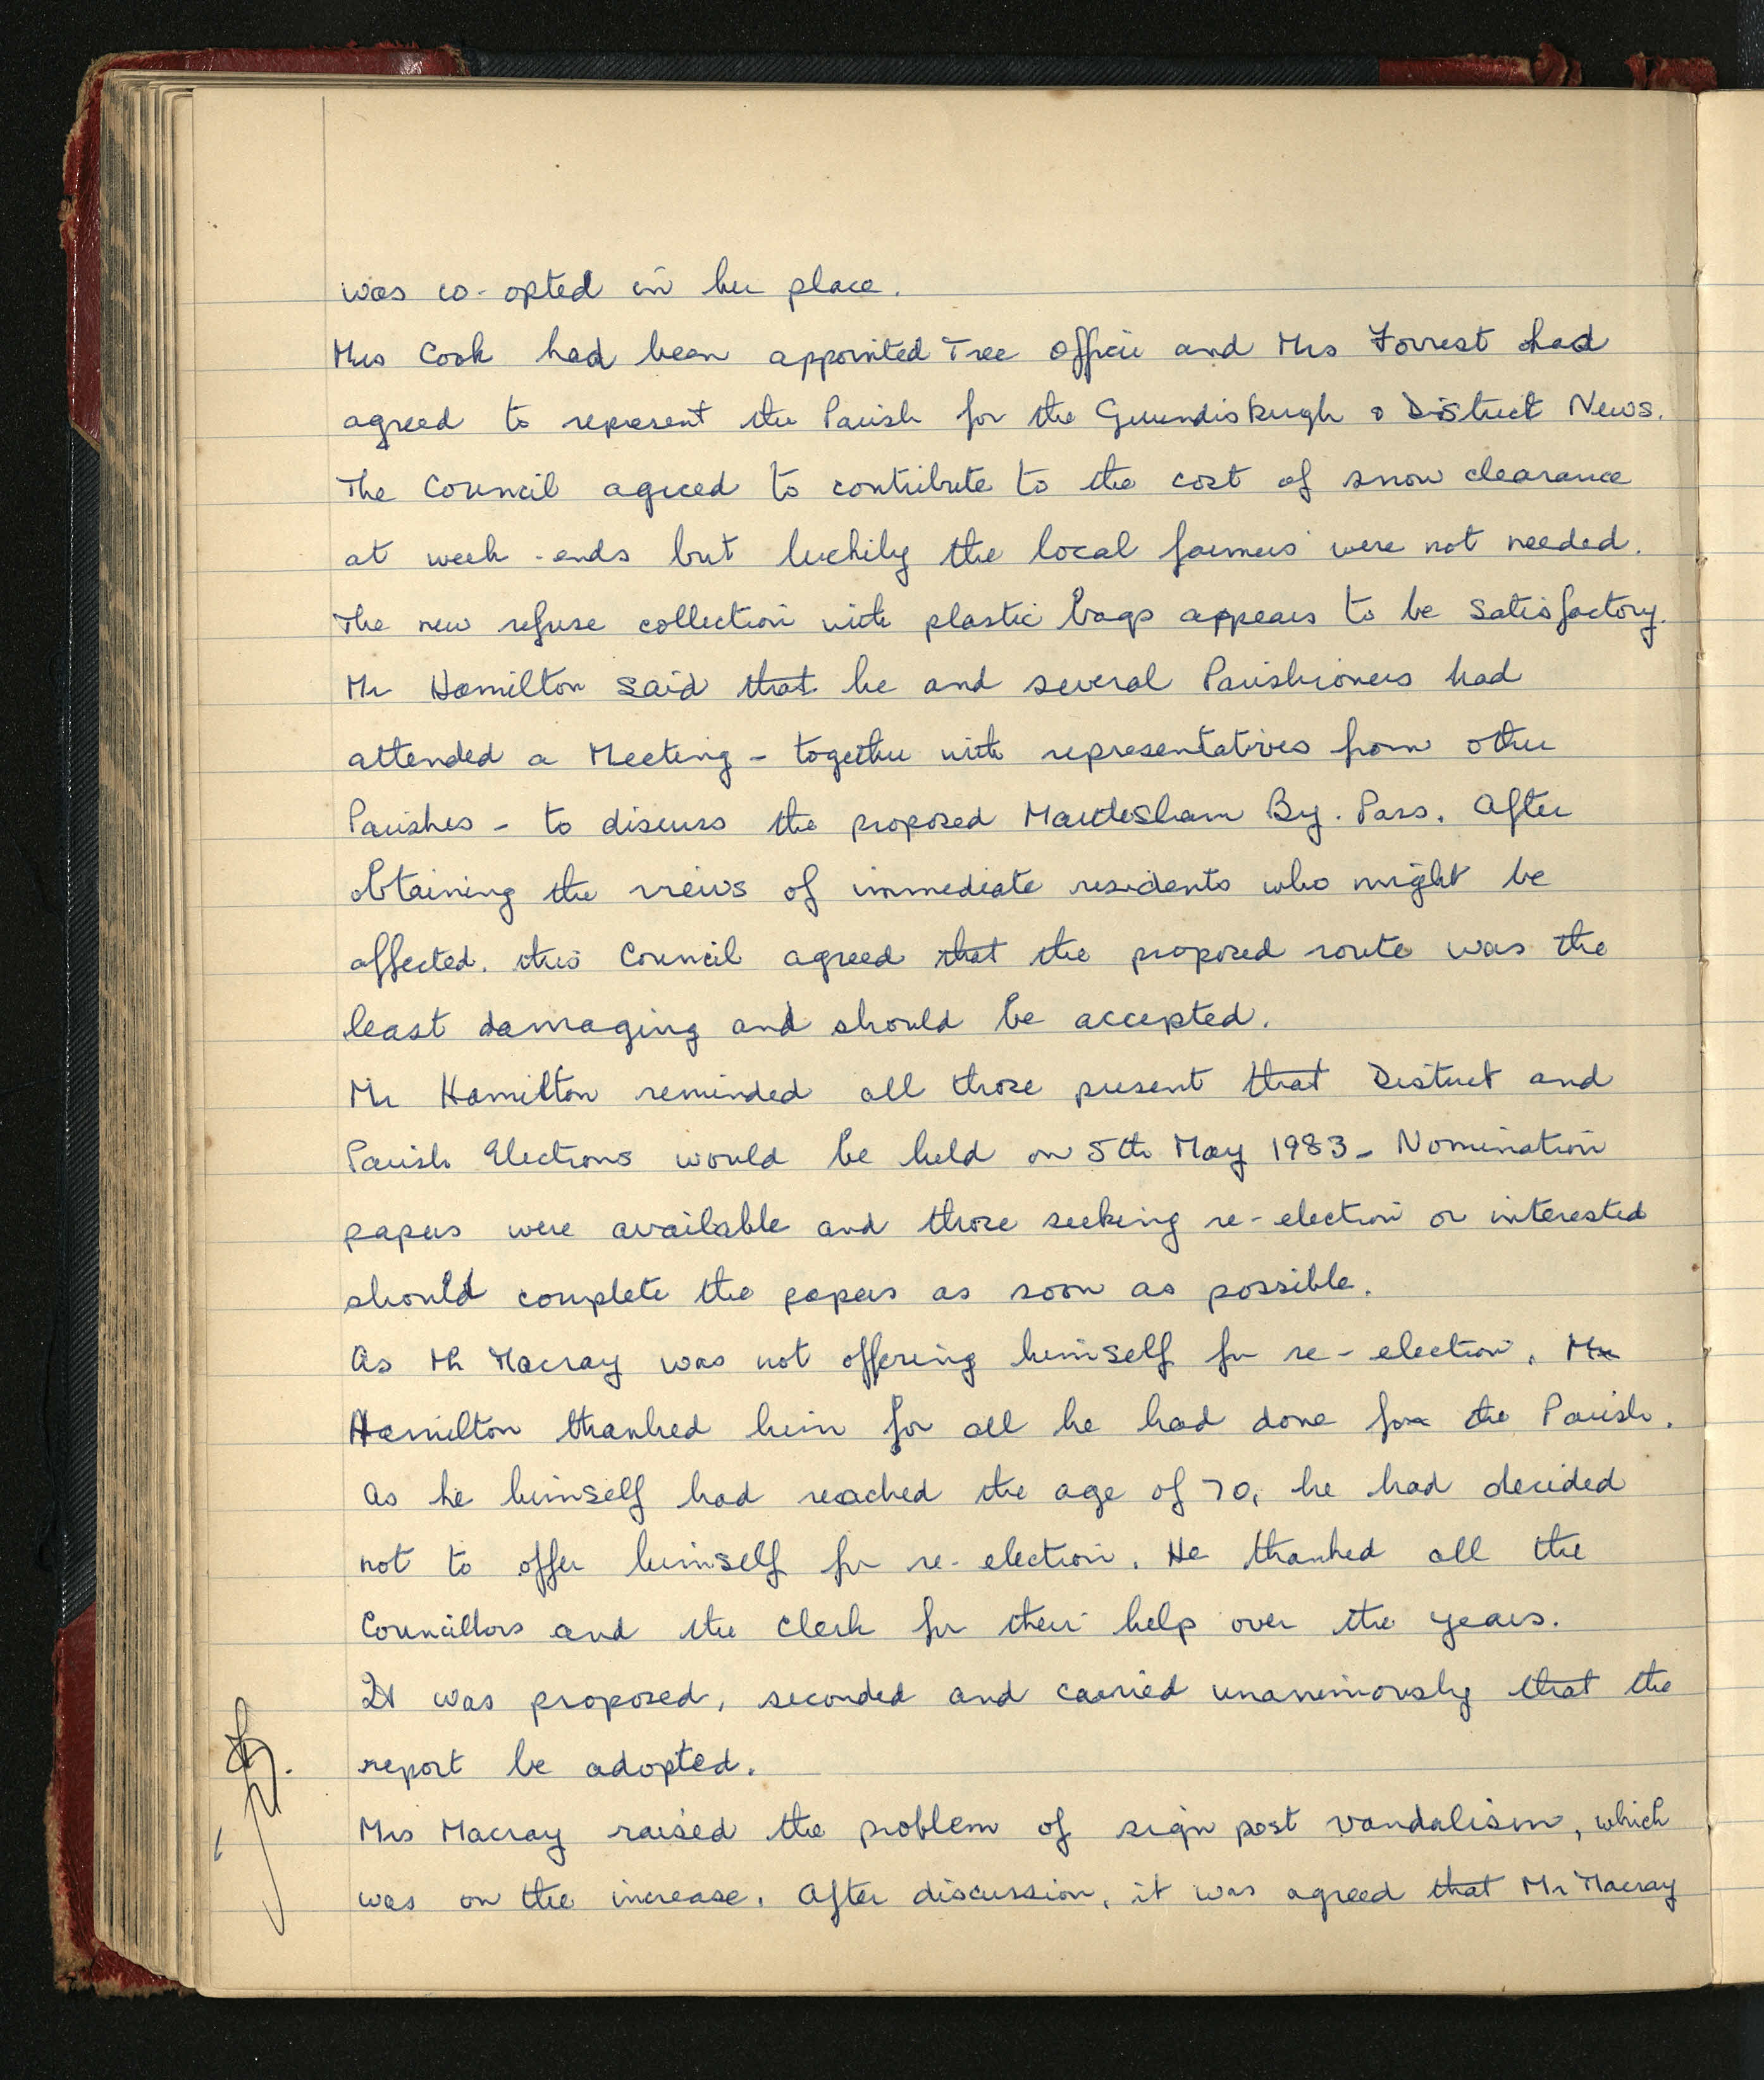 was co-opted in her place.
Mrs Cook had been appointed Tree Officer and Mrs Forrest had
agreed to represent the Parish for the Grundisburgh & District News.
The Council agreed to contribute to the cost of snow clearance
at week-ends but luckily the local farmers were not needed.
The new refuse collection with plastic bags appears to be satisfactory.
Mr Hamilton said that he and several Parishioners had
attended a Meeting - together with representatives from other
Parishes - to discuss the proposed Martlesham By-Pass. After
obtaining the views of immediate residents who might be
affected, this Council agreed that the proposed route was the
least damaging and should be accepted.
Mr Hamilton reminded all those present that District and
Parish Elections would be held on 5th May 1983 - Nomination
papers were available and those seeking re-election or interested
should complete the papers as soon as possible.
As Mr Macray was not offering himself for re-election, Mr
Hamilton thanked him for all he had done for the Parish.
As he himself had reached the age of 70, he had decided
not to offer himself for re-election. He thanked all the
Councillors and the Clerk for their help over the years.
It was proposed, seconded and carried unanimously that the
report be adopted.
Mrs Macray raised the problem of sign post vandalism, which
was on the increase. After discussion, it was agreed that Mr Macray